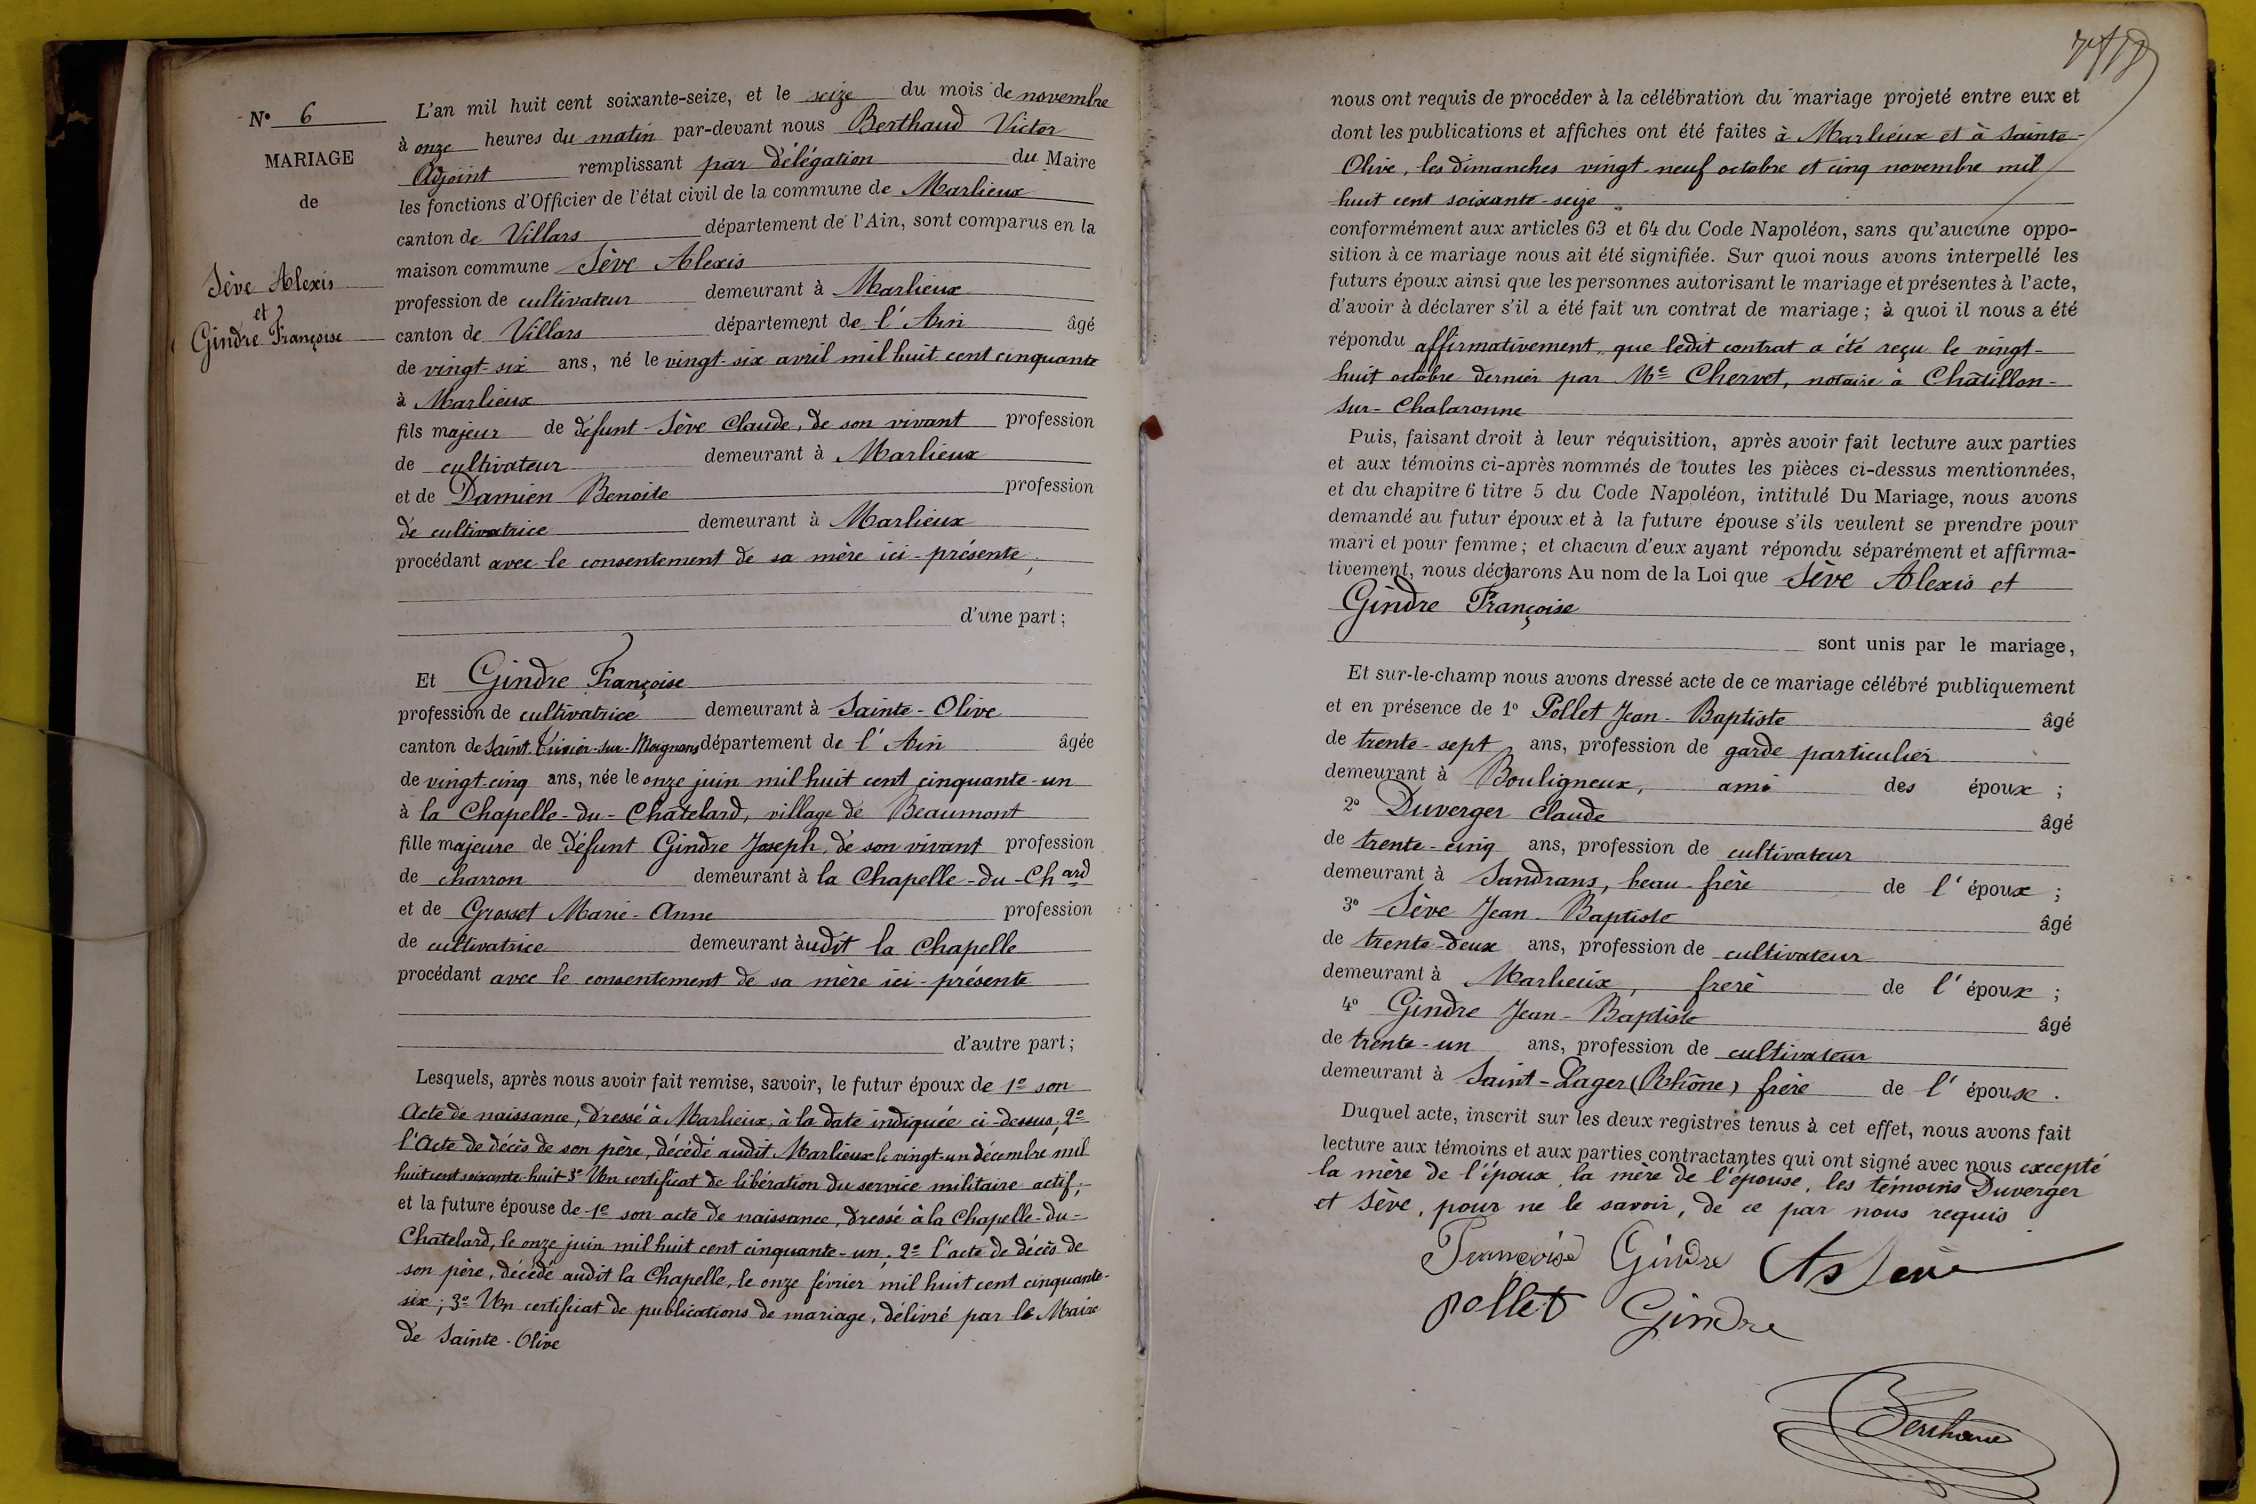 N° 6
MARIAGE
de
Sève Alexis
et
Gindre Françoise
L'an mil huit cent soixante-seize, et le seize du mois de novembre
à onze heures du matin par-devant nous Berthaud Victor
Adjoint remplissant par délégation du Maire
les fonctions d'Officier de l'état civil de la commune de Marlieux
canton de Villars département de l'Ain, sont comparus en la
maison commune Sève Alexis
profession de cultivateur demeurant à Marlieux
canton de Villars département de l'Ain âgé
de vingt-six ans, né le vingt-six avril mil huit cent cinquante
à Marlieux
fils majeur de défunt Sève Claude, de son vivant profession
de cultivateur demeurant à Marlieux
et de Damien Benoite profession
de cultivatrice demeurant à Marlieux
procédant avec le consentement de sa mère ici-présente,
d'une part;
Et Gindre Françoise
profession de cultivatrice demeurant à Sainte-Olive
canton de Saint-Trivier-sur-Moignans département de l'Ain âgée
de vingt-cinq ans, née le onze juin mil huit cent cinquante-un
à la Chapelle-du-Chatelard, village de Beaumont
fille majeure de défunt Gindre Joseph, de son vivant profession
de charron demeurant à la Chapelle-du-Chard
et de Grosset Marie-Anne profession
de cultivatrice demeurant àudit la Chapelle
procédant avec le consentement de sa mère ici-présente
d'autre part;
Lesquels, après nous avoir fait remise, savoir, le futur époux de 1° son
Acte de naissance, dressé à Marlieux, à la date indiquée ci-dessus; 2°
l'Acte de décès de son père, décédé audit Marlieux le vingt-un décembre mil
huit cent soixante-huit 3° Un certificat de libération du service militaire actif;
et la future épouse de 1° son acte de naissance, dressé à la Chapelle-du-
Chatelard, le onze juin mil huit cent cinquante-un; 2° l'acte de décès de
son père, décédé audit la Chapelle, le onze février mil huit cent cinquante-
six; 3° Un certificat de publications de mariage, délivré par le Maire
de Sainte-Olive
nous ont requis de procéder à la célébration du mariage projeté entre eux et
dont les publications et affiches ont été faites à Marlieux et à Sainte-
Olive, les dimanches vingt-neuf octobre et cinq novembre mil
huit cent soixante-seize
conformément aux articles 63 et 64 du Code Napoléon, sans qu'aucune oppo-
sition à ce mariage nous ait été signifiée. Sur quoi nous avons interpellé les
futurs époux ainsi que les personnes autorisant le mariage et présentes à l'acte,
d'avoir à déclarer s'il a été fait un contrat de mariage; à quoi il nous a été
répondu affirmativement, que ledit contrat a été reçu le vingt-
huit octobre dernier par Me Chervet, notaire à Châtillon-
sur-Chalaronne
Puis, faisant droit à leur réquisition, après avoir fait lecture aux parties
et aux témoins ci-après nommés de toutes les pièces ci-dessus mentionnées,
et du chapitre 6 titre 5 du Code Napoléon, intitulé Du Mariage, nous avons
demandé au futur époux et à la future épouse s'ils veulent se prendre pour
mari et pour femme; et chacun d'eux ayant répondu séparément et affirma-
tivement, nous déclarons Au nom de la Loi que Sève Alexis et
Gindre Françoise
sont unis par le mariage,
Et sur-le-champ nous avons dressé acte de ce mariage célébré publiquement
et en présence de 1° Pollet Jean-Baptiste âgé
de trente-sept ans, profession de garde particulier
demeurant à Bouligneux, ami des époux;
2° Duverger Claude âgé
de trente-cinq ans, profession de cultivateur
demeurant à Sandrans, beau-frère de l'époux;
3° Sève Jean-Baptiste âgé
de trente-deux ans, profession de cultivateur
demeurant à Marlieux, frère de l'époux;
4° Gindre Jean-Baptiste âgé
de trente-un ans, profession de cultivateur
demeurant à Saint-Lager (Rhône) frère de l'épouse.
Duquel acte, inscrit sur les deux registres tenus à cet effet, nous avons fait
lecture aux témoins et aux parties contractantes qui ont signé avec nous excepté
la mère de l'époux, la mère de l'épouse, les témoins Duverger
et Sève, pour ne le savoir, de ce par nous requis
Françoise Gindre As Seve
pollet Gindre
Berthaud